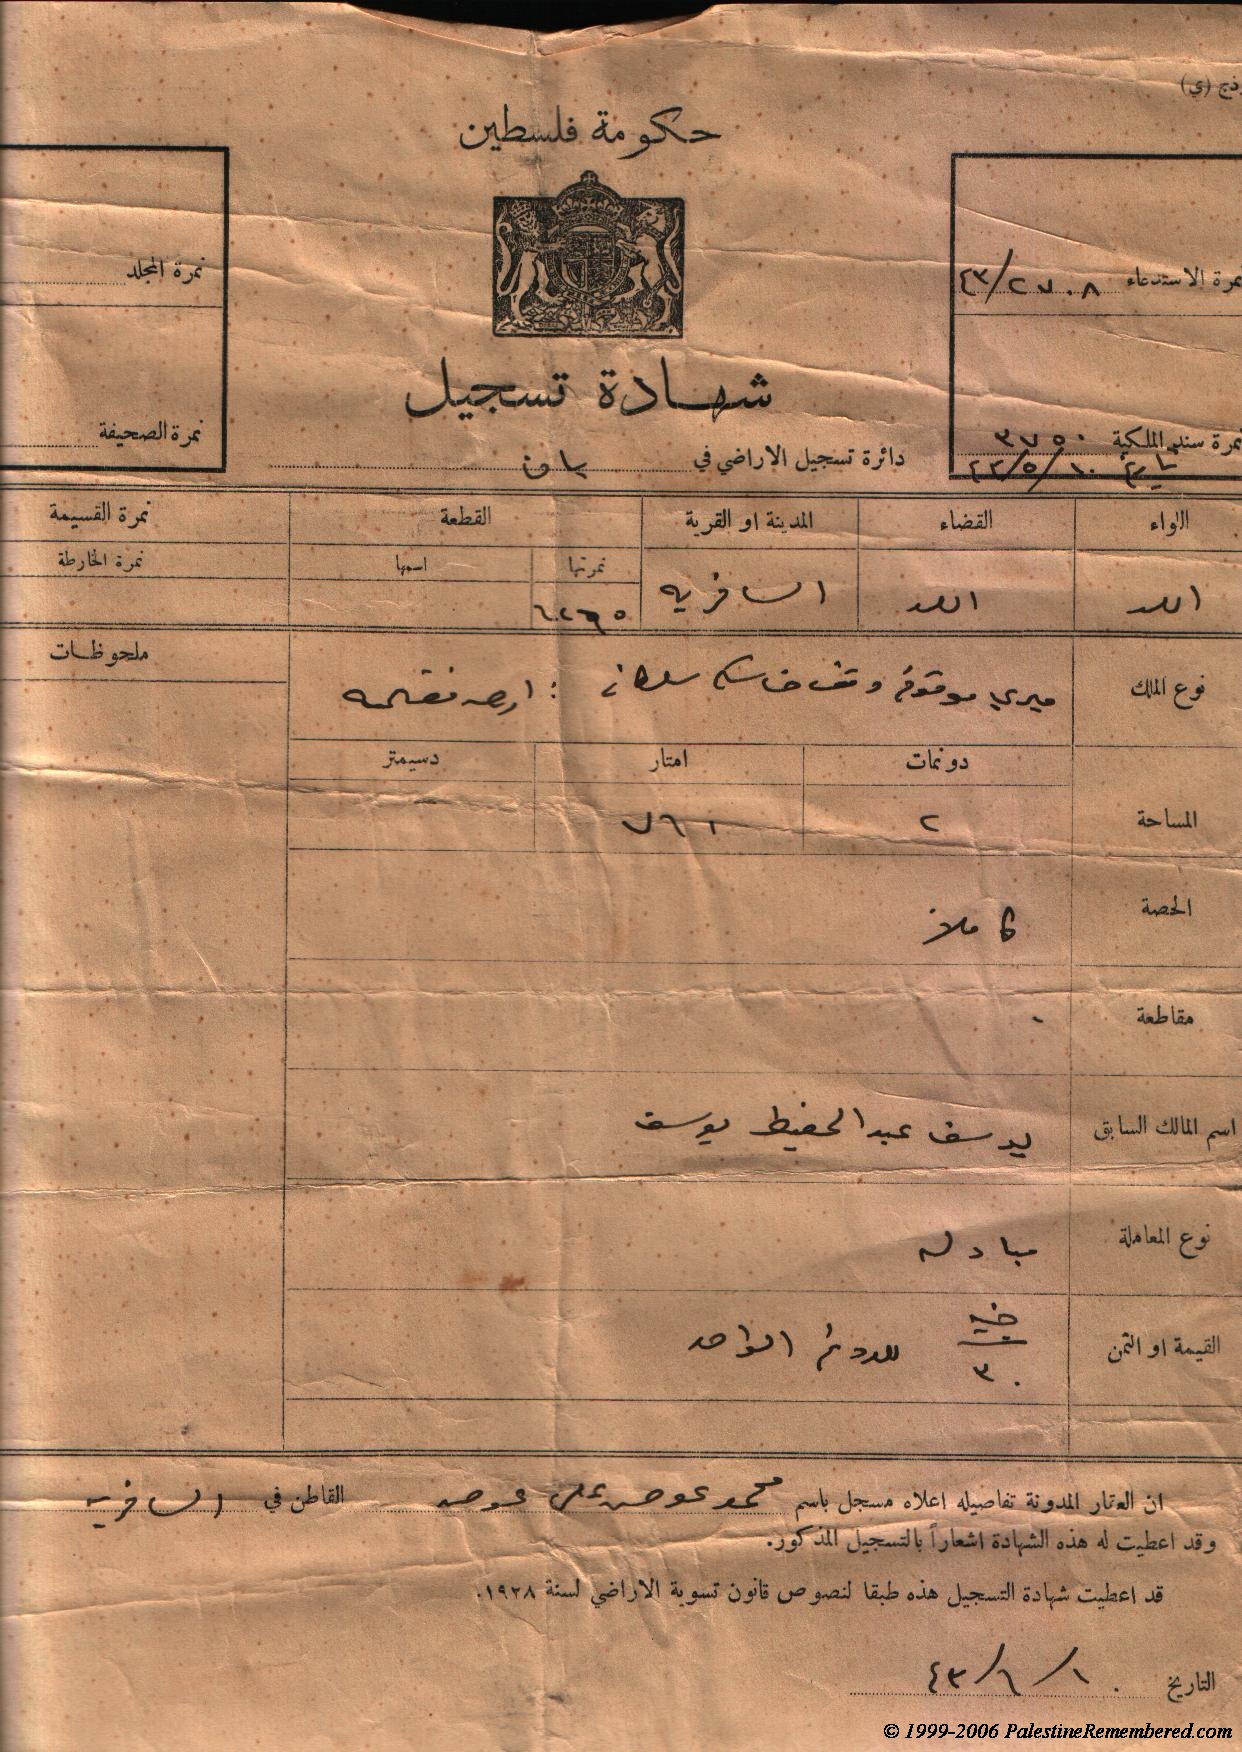 حكومة فلسطين
نمرة الاستدعاء ٤٣/٢٧٠٨
نمرة سند الملكية ٣٧٥٠
تاريخ ٢٢/٥/١٠
نمرة المجلد
نمرة الصحيفة
شهادة تسجيل
دائرة تسجيل الاراضي في يافا
اللواء القضاء المدينة او القرية القطعة نمرة القسيمة
نمرتها اسمها نمرة الخارطة
اللد اللد السافريه
نوع الملك ميري موقوفه وقف سلطاني : ارض
ملحوظات
دونمات امتار دسيمتر
المساحة ٢ ٧٦١
الحصة كاملا
مقاطعة
اسم المالك السابق يوسف عبد الحفيظ يوسف
نوع المعاملة مبادله
القيمة او الثمن جنيه ٣٠ للدونم الواحد
ان العقار المدونة تفاصيله اعلاه مسجل باسم محمد عوض علي عوض القاطن في السافريه
وقد اعطيت له هذه الشهادة اشعاراً بالتسجيل المذكور.
قد اعطيت شهادة التسجيل هذه طبقا لنصوص قانون تسوية الاراضي لسنة ١٩٢٨.
التاريخ ١٠/٦/٤٣
© 1999-2006 PalestineRemembered.com